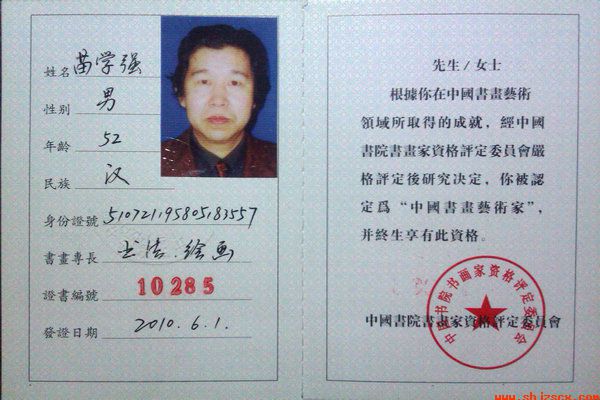 姓名 苗学强
性别 男
年齡 52
民族 汉
身份證號 510721195805183557
書畫專長 书法.绘画
證書編號 10285
發證日期 2010.6.1.
先生/女士
根據你在中國書畫藝術
領域所取得的成就，經中國
書院書畫家資格評定委員會嚴
格評定後研究決定，你被認
定爲“中國書畫藝術家”，
并終生享有此資格。
中國书院书画家资格评定委员会
中國書院書畫家資格評定委員會
www.shjzscx.com